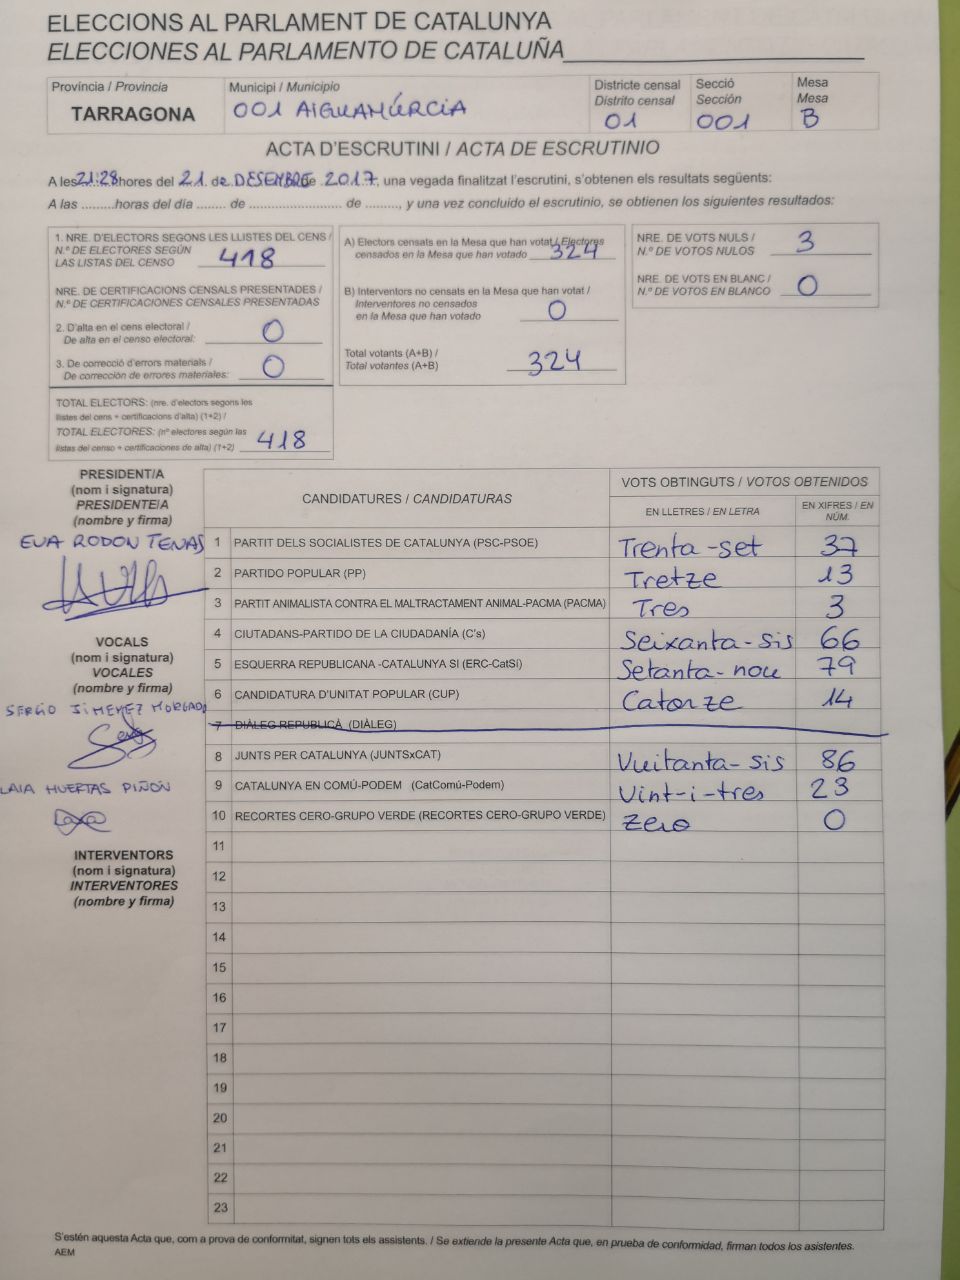 ELECCIONS AL PARLAMENT DE CATALUNYA
ELECCIONES AL PARLAMENTO DE CATALUÑA
Província / Provincia
TARRAGONA
Municipi / Municipio
001 AIGUAMÚRCIA
Districte censal
Distrito censal
01
Secció
Sección
001
Mesa
Mesa
B
ACTA D'ESCRUTINI / ACTA DE ESCRUTINIO
A les 21:28 hores del 21. de DESEMBRE de 2017, una vegada finalitzat l'escrutini, s'obtenen els resultats següents:
A las .........horas del día ........ de ......................... de ........, y una vez concluido el escrutinio, se obtienen los siguientes resultados:
1. NRE. D'ELECTORS SEGONS LES LLISTES DEL CENS /
N.º DE ELECTORES SEGÚN
LAS LISTAS DEL CENSO 418
NRE. DE CERTIFICACIONS CENSALS PRESENTADES /
N.º DE CERTIFICACIONES CENSALES PRESENTADAS
2. D'alta en el cens electoral /
De alta en el censo electoral: 0
3. De correcció d'errors materials /
De corrección de errores materiales: 0
TOTAL ELECTORS: (nre. d'electors segons les
llistes del cens + certificacions d'alta) (1+2) /
TOTAL ELECTORES: (nº electores según las
listas del censo + certificaciones de alta) (1+2) 418
A) Electors censats en la Mesa que han votat / Electores
censados en la Mesa que han votado 324
B) Interventors no censats en la Mesa que han votat /
Interventores no censados
en la Mesa que han votado 0
Total votants (A+B) /
Total votantes (A+B) 324
NRE. DE VOTS NULS /
N.º DE VOTOS NULOS 3
NRE. DE VOTS EN BLANC /
N.º DE VOTOS EN BLANCO 0
PRESIDENT/A
(nom i signatura)
PRESIDENTE/A
(nombre y firma)
EVA RODON TENAS
VOCALS
(nom i signatura)
VOCALES
(nombre y firma)
SERGIO JIMENEZ MORGADO
LAIA HUERTAS PIÑÓN
INTERVENTORS
(nom i signatura)
INTERVENTORES
(nombre y firma)
CANDIDATURES / CANDIDATURAS
VOTS OBTINGUTS / VOTOS OBTENIDOS
EN LLETRES / EN LETRA
EN XIFRES / EN
NÚM.
1 PARTIT DELS SOCIALISTES DE CATALUNYA (PSC-PSOE) Trenta-set 37
2 PARTIDO POPULAR (PP) Tretze 13
3 PARTIT ANIMALISTA CONTRA EL MALTRACTAMENT ANIMAL-PACMA (PACMA) Tres 3
4 CIUTADANS-PARTIDO DE LA CIUDADANÍA (C's) Seixanta-sis 66
5 ESQUERRA REPUBLICANA -CATALUNYA SI (ERC-CatSí) Setanta-nou 79
6 CANDIDATURA D'UNITAT POPULAR (CUP) Catorze 14
7 DIÀLEG REPUBLICÀ (DIÀLEG)
8 JUNTS PER CATALUNYA (JUNTSxCAT) Vuitanta-sis 86
9 CATALUNYA EN COMÚ-PODEM (CatComú-Podem) Vint-i-tres 23
10 RECORTES CERO-GRUPO VERDE (RECORTES CERO-GRUPO VERDE) Zero 0
11
12
13
14
15
16
17
18
19
20
21
22
23
S'estén aquesta Acta que, com a prova de conformitat, signen tots els assistents. / Se extiende la presente Acta que, en prueba de conformidad, firman todos los asistentes.
AEM